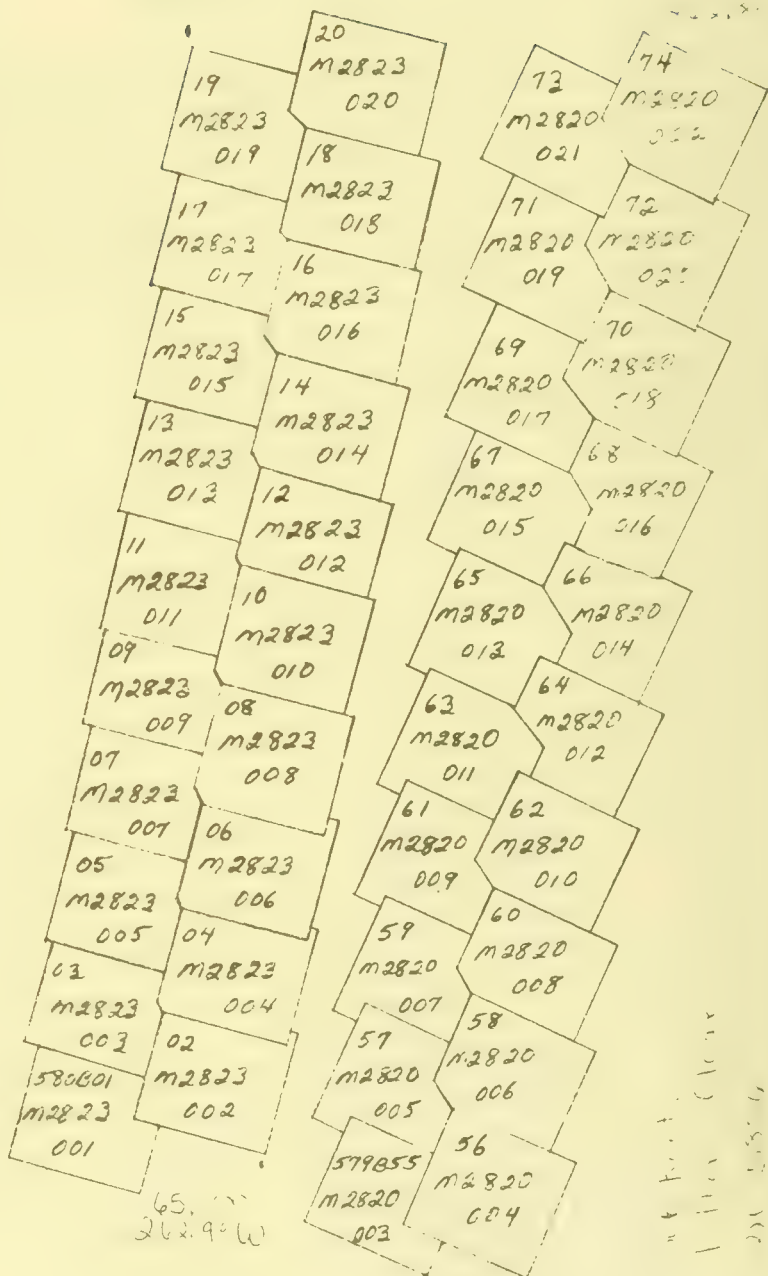 20
M2823
020
19
M2823
019
18
M2823
018
17
M2823
017
16
M2823
016
15
M2823
015
14
M2823
014
13
M2823
013
12
M2823
012
11
M2823
011
10
M2823
010
09
M2823
009
08
M2823
008
07
M2823
007
06
M2823
006
05
M2823
005
04
M2823
004
03
M2823
003
02
M2823
002
580B01
M2823
001
74
M2820
73
M2820
021
72
M2820
71
M2820
019
70
M2820
018
69
M2820
017
68
M2820
016
67
M2820
015
66
M2820
014
65
M2820
013
64
M2820
012
63
M2820
011
62
M2820
010
61
M2820
009
60
M2820
008
59
M2820
007
58
M2820
006
57
M2820
005
56
M2820
004
579B55
M2820
003